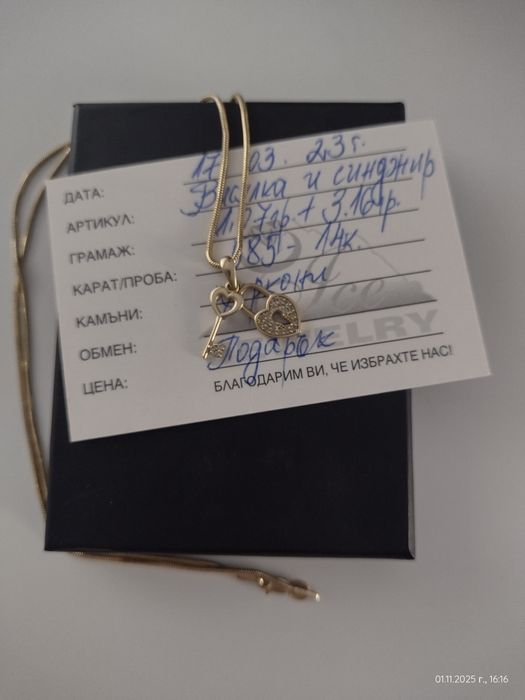 ДАТА: 17 03. 23г.
АРТИКУЛ: Висулка и синджир
ГРАМАЖ: 1, 7гр + 3.16гр.
КАРАТ/ПРОБА: 585 - 14к.
КАМЪНИ: циркони
ОБМЕН:
ЦЕНА: Подарък
JEWELRY
БЛАГОДАРИМ ВИ, ЧЕ ИЗБРАХТЕ НАС!
01.11.2025 г., 16:16